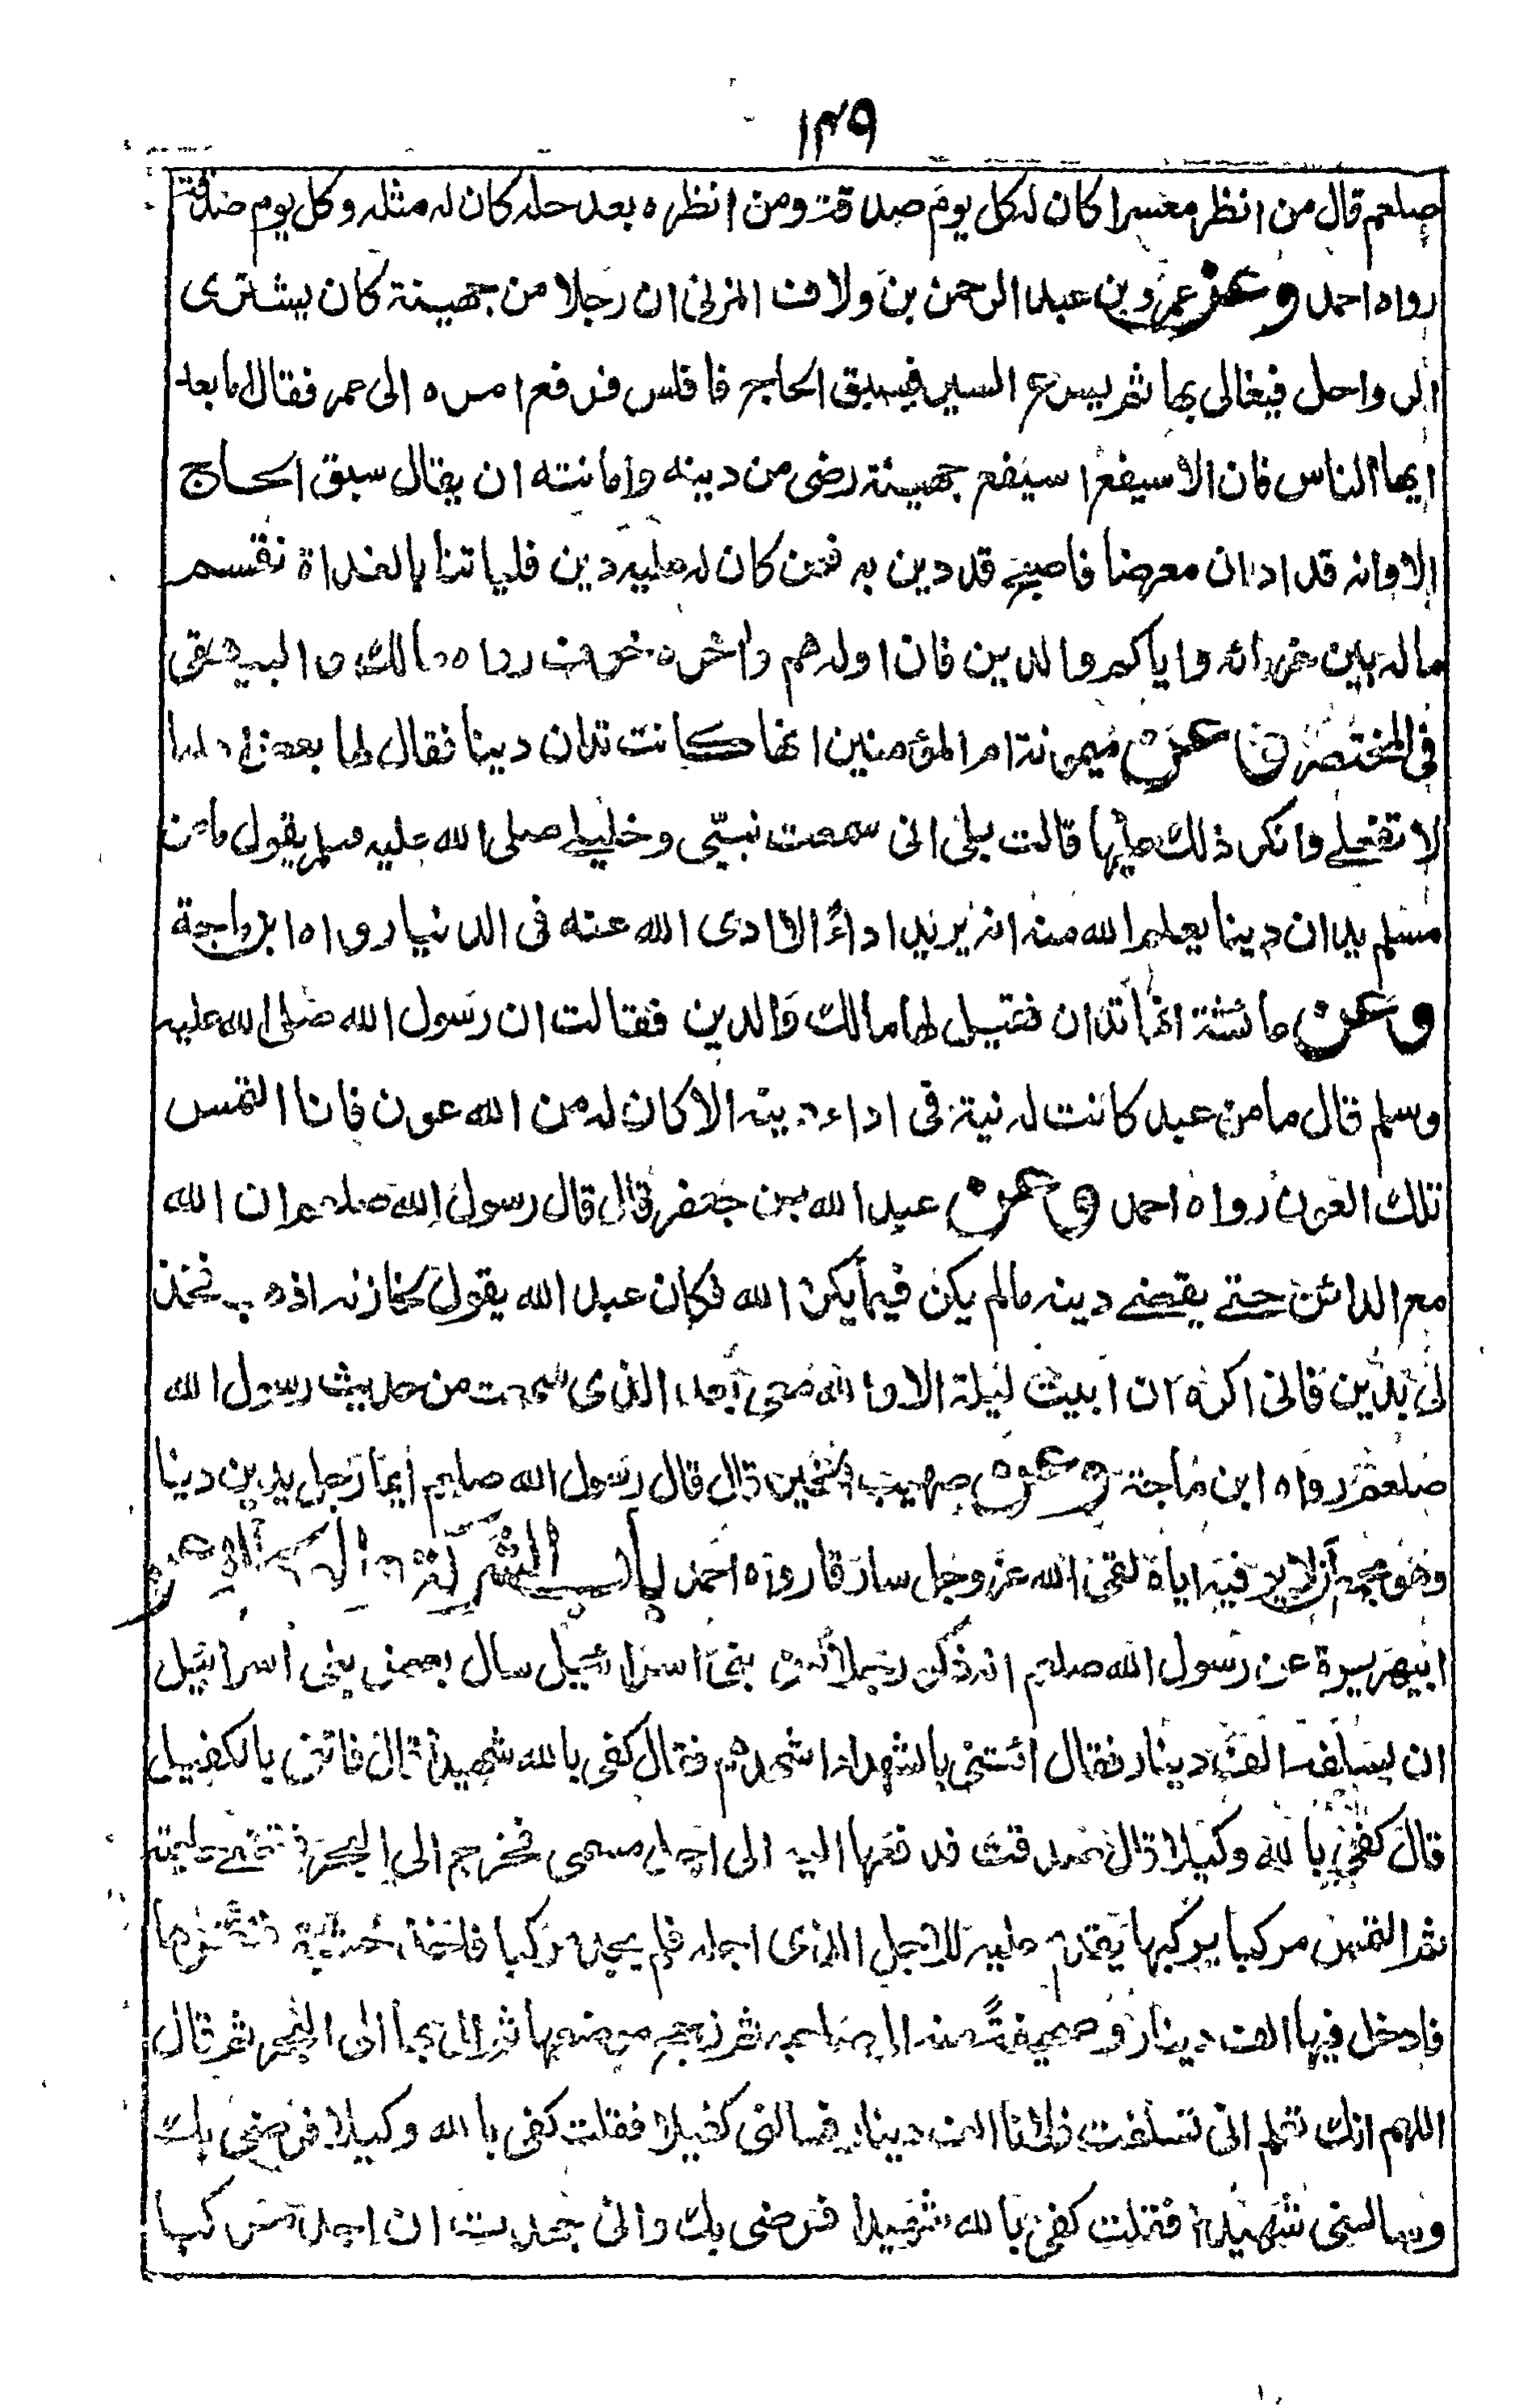 ۱۴۹
صلعم قال من انظر معسرا كان له كل يوم صدقة ومن انظره بعد حله كان له مثله وكل يوم صدقة
رواه احمد وعن عمرو بن عبد الرحمن بن ولاف المزنى ان رجلا من جهينة كان يشترى
الرواحل فيغالى بها ثم يسرع السير فيسبق الحاج فافلس فرفع امره الى عمر فقال اما بعد
ايها الناس فان الاسيفع اسيفع جهينة رضى من دينه وامانته ان يقال سبق الحاج
الا وانه قد ادان معرضا فاصبح قد دين به فمن كان له عليه دين فلياتنا بالغداة نقسم
ماله بين غرمائه واياكم والدين فان اوله هم واخره حرب رواه مالك والبيهقى
فى المختصر وعن ميمونة ام المؤمنين انها كانت تدان دينا فقال لها بعض اهلها
لا تفعلى وانكر ذلك عليها قالت بلى انى سمعت نبيى وخليلى صلى الله عليه وسلم يقول ما من
مسلم يدان دينا يعلم الله منه انه يريد اداءً الا ادى الله عنه فى الدنيا رواه ابن ماجة
وعن عائشة انها تدان فقيل لها مالك والدين فقالت ان رسول الله صلى الله عليه
وسلم قال ما من عبد كانت له نية فى اداء دينه الا كان له من الله عون فانا التمس
تلك العون رواه احمد وعن عبد الله بن جعفر قال قال رسول الله صلعم ان الله
مع الدائن حتى يقضى دينه مالم يكن فيما يكره الله فكان عبد الله يقول لخازنه اذهب فخذ
لى بدين فانى اكره ان ابيت ليلة الا والله معى بعد الذى سمعت من حديث رسول الله
صلعم رواه ابن ماجة وعن صهيب الخير قال قال رسول الله صلعم ايما رجل يدين دينا
وهو مجمع ان لا يوفيه اياه لقى الله عز وجل سارقا رواه احمد باب الشركة والوكالة عن
ابيهريرة عن رسول الله صلعم انه ذكر رجلا من بنى اسرائيل سال بعض بنى اسرائيل
ان يسلفه الف دينار فقال ائتنى بالشهداء اشهدهم فقال كفى بالله شهيدا قال فائتنى بالكفيل
قال كفى بالله وكيلا قال صدقت فدفعها اليه الى اجل مسمى فخرج الى البحر فقضى حاجته
ثم التمس مركبا يركبها يقدم عليه للاجل الذى اجله فلم يجد مركبا فاخذ خشبة فنقرها
فادخل فيها الف دينار وصحيفة منه الى صاحبه ثم زجج موضعها ثم اتى بها الى البحر ثم قال
اللهم انك تعلم انى تسلفت فلانا الف دينار فسالنى كفيلا فقلت كفى بالله وكيلا فرضى بك
وسالنى شهيدا فقلت كفى بالله شهيدا فرضى بك وانى جهدت ان اجد مركبا